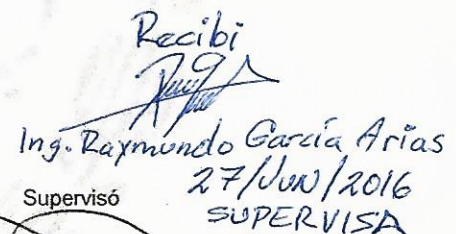 Recibi
Ing. Raymundo García Arias
27/JUN/2016
Supervisó
SUPERVISA